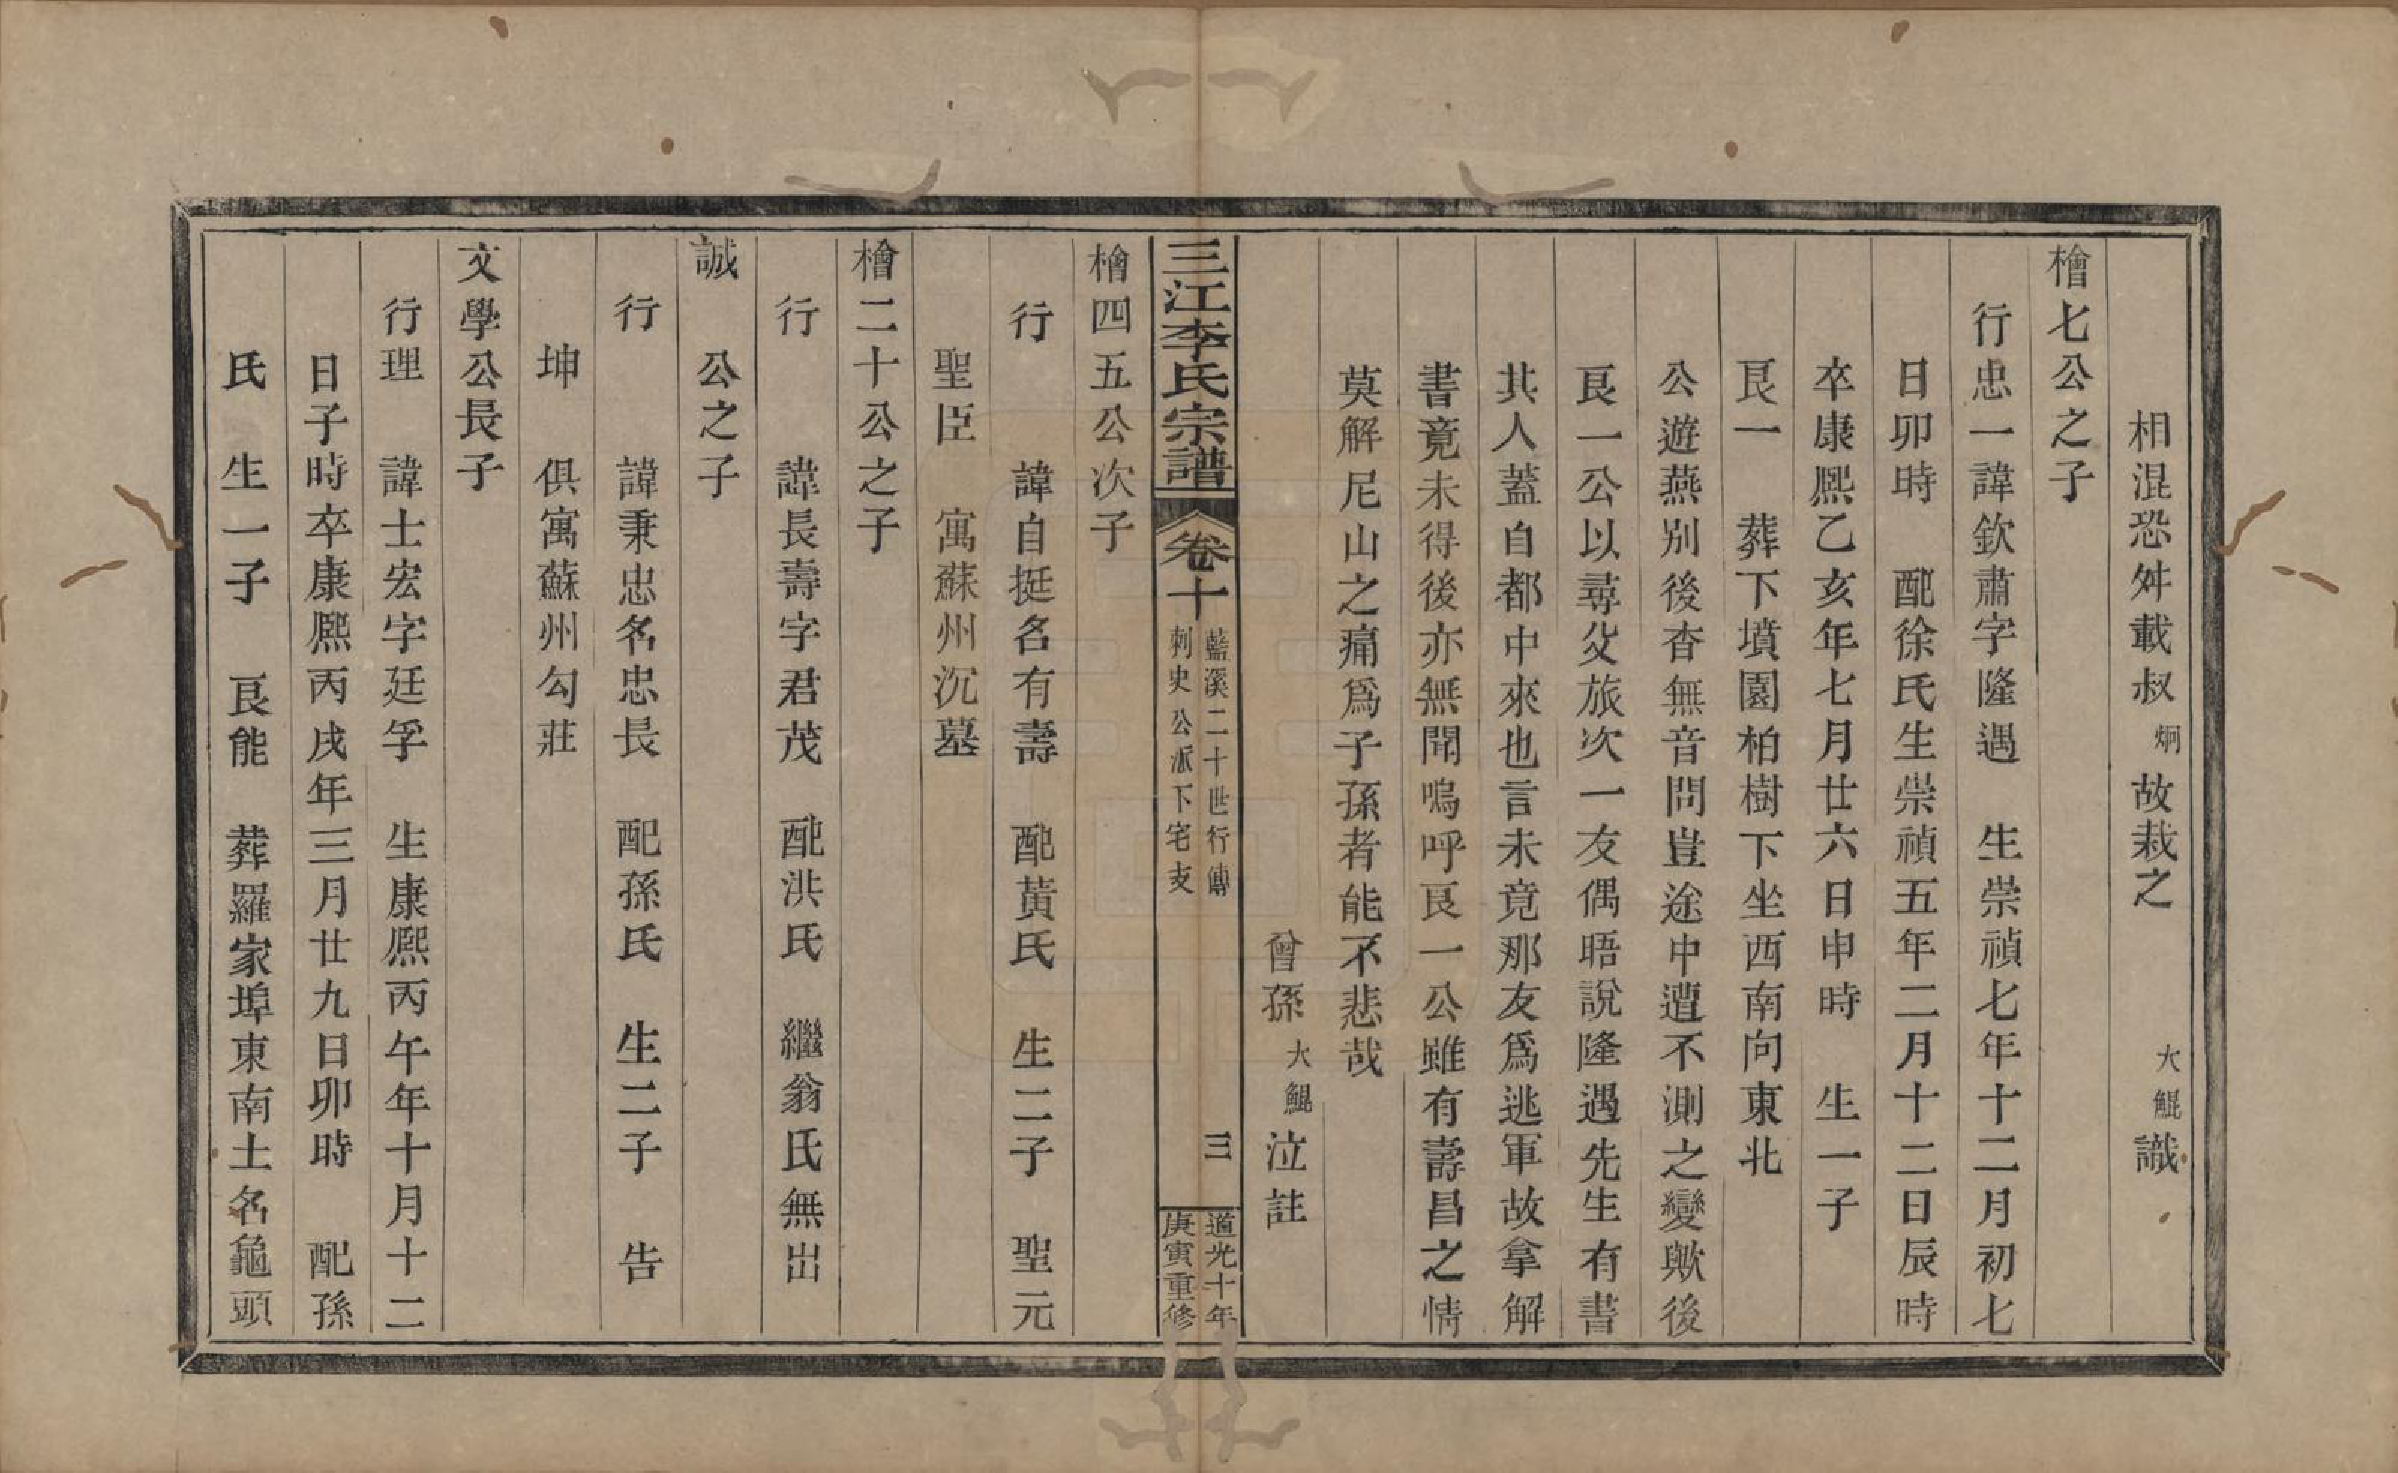 相混恐舛載叔炯故栽之 大鯤識
檜七公之子
行忠一諱欽肅字隆遇 生崇禎七年十二月初七
日卯時 配徐氏生崇禎五年二月十二日辰時
卒康熙乙亥年七月廿六日申時 生一子
良一 葬下墳園柏樹下坐西南向東北
公遊燕別後杳無音問豈途中遭不測之變歟後
良一公以尋父旅次一友偶晤說隆遇先生有書
其人蓋自都中來也言未竟那友為逃軍故拿解
書竟未得後亦無聞嗚呼良一公雖有壽昌之情
莫解尼山之痛爲子孫者能不悲哉
曾孫大鯤泣註
三江李氏宗譜 卷十 藍溪二十世行傳 刺史公派下宅支 三 道光十年庚寅重修
檜四五公次子
行 諱自挺名有壽 配黃氏 生二子 聖元
聖臣 寓蘇州沉墓
檜二十公之子
行 諱長壽字君茂 配洪氏 繼翁氏無出
誠 公之子
行 諱秉忠名忠長 配孫氏 生二子 告
坤 俱寓蘇州勾莊
文學公長子
行理 諱士宏字廷孚 生康熙丙午年十月十二
日子時卒康熙丙戌年三月廿九日卯時 配孫
氏 生一子 良能 葬羅家埠東南土名龜頭